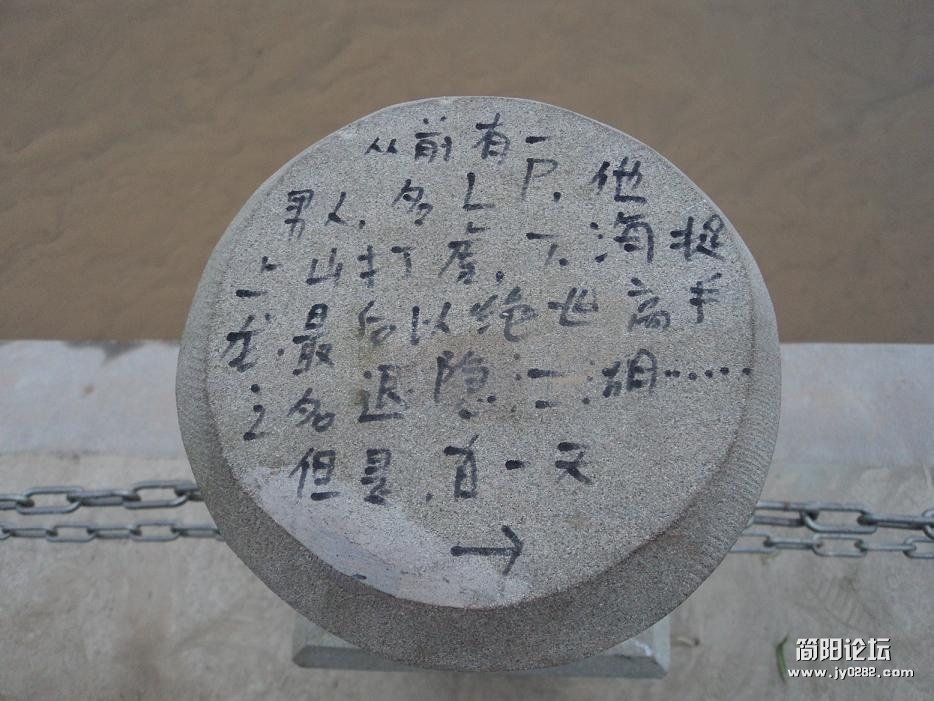 从前有一
男人,名L P,他
上山打虎,下海捉
龙,最后以绝世高手
之名退隐江湖……
但是,有一天
→
简阳论坛
www.jy0282.com